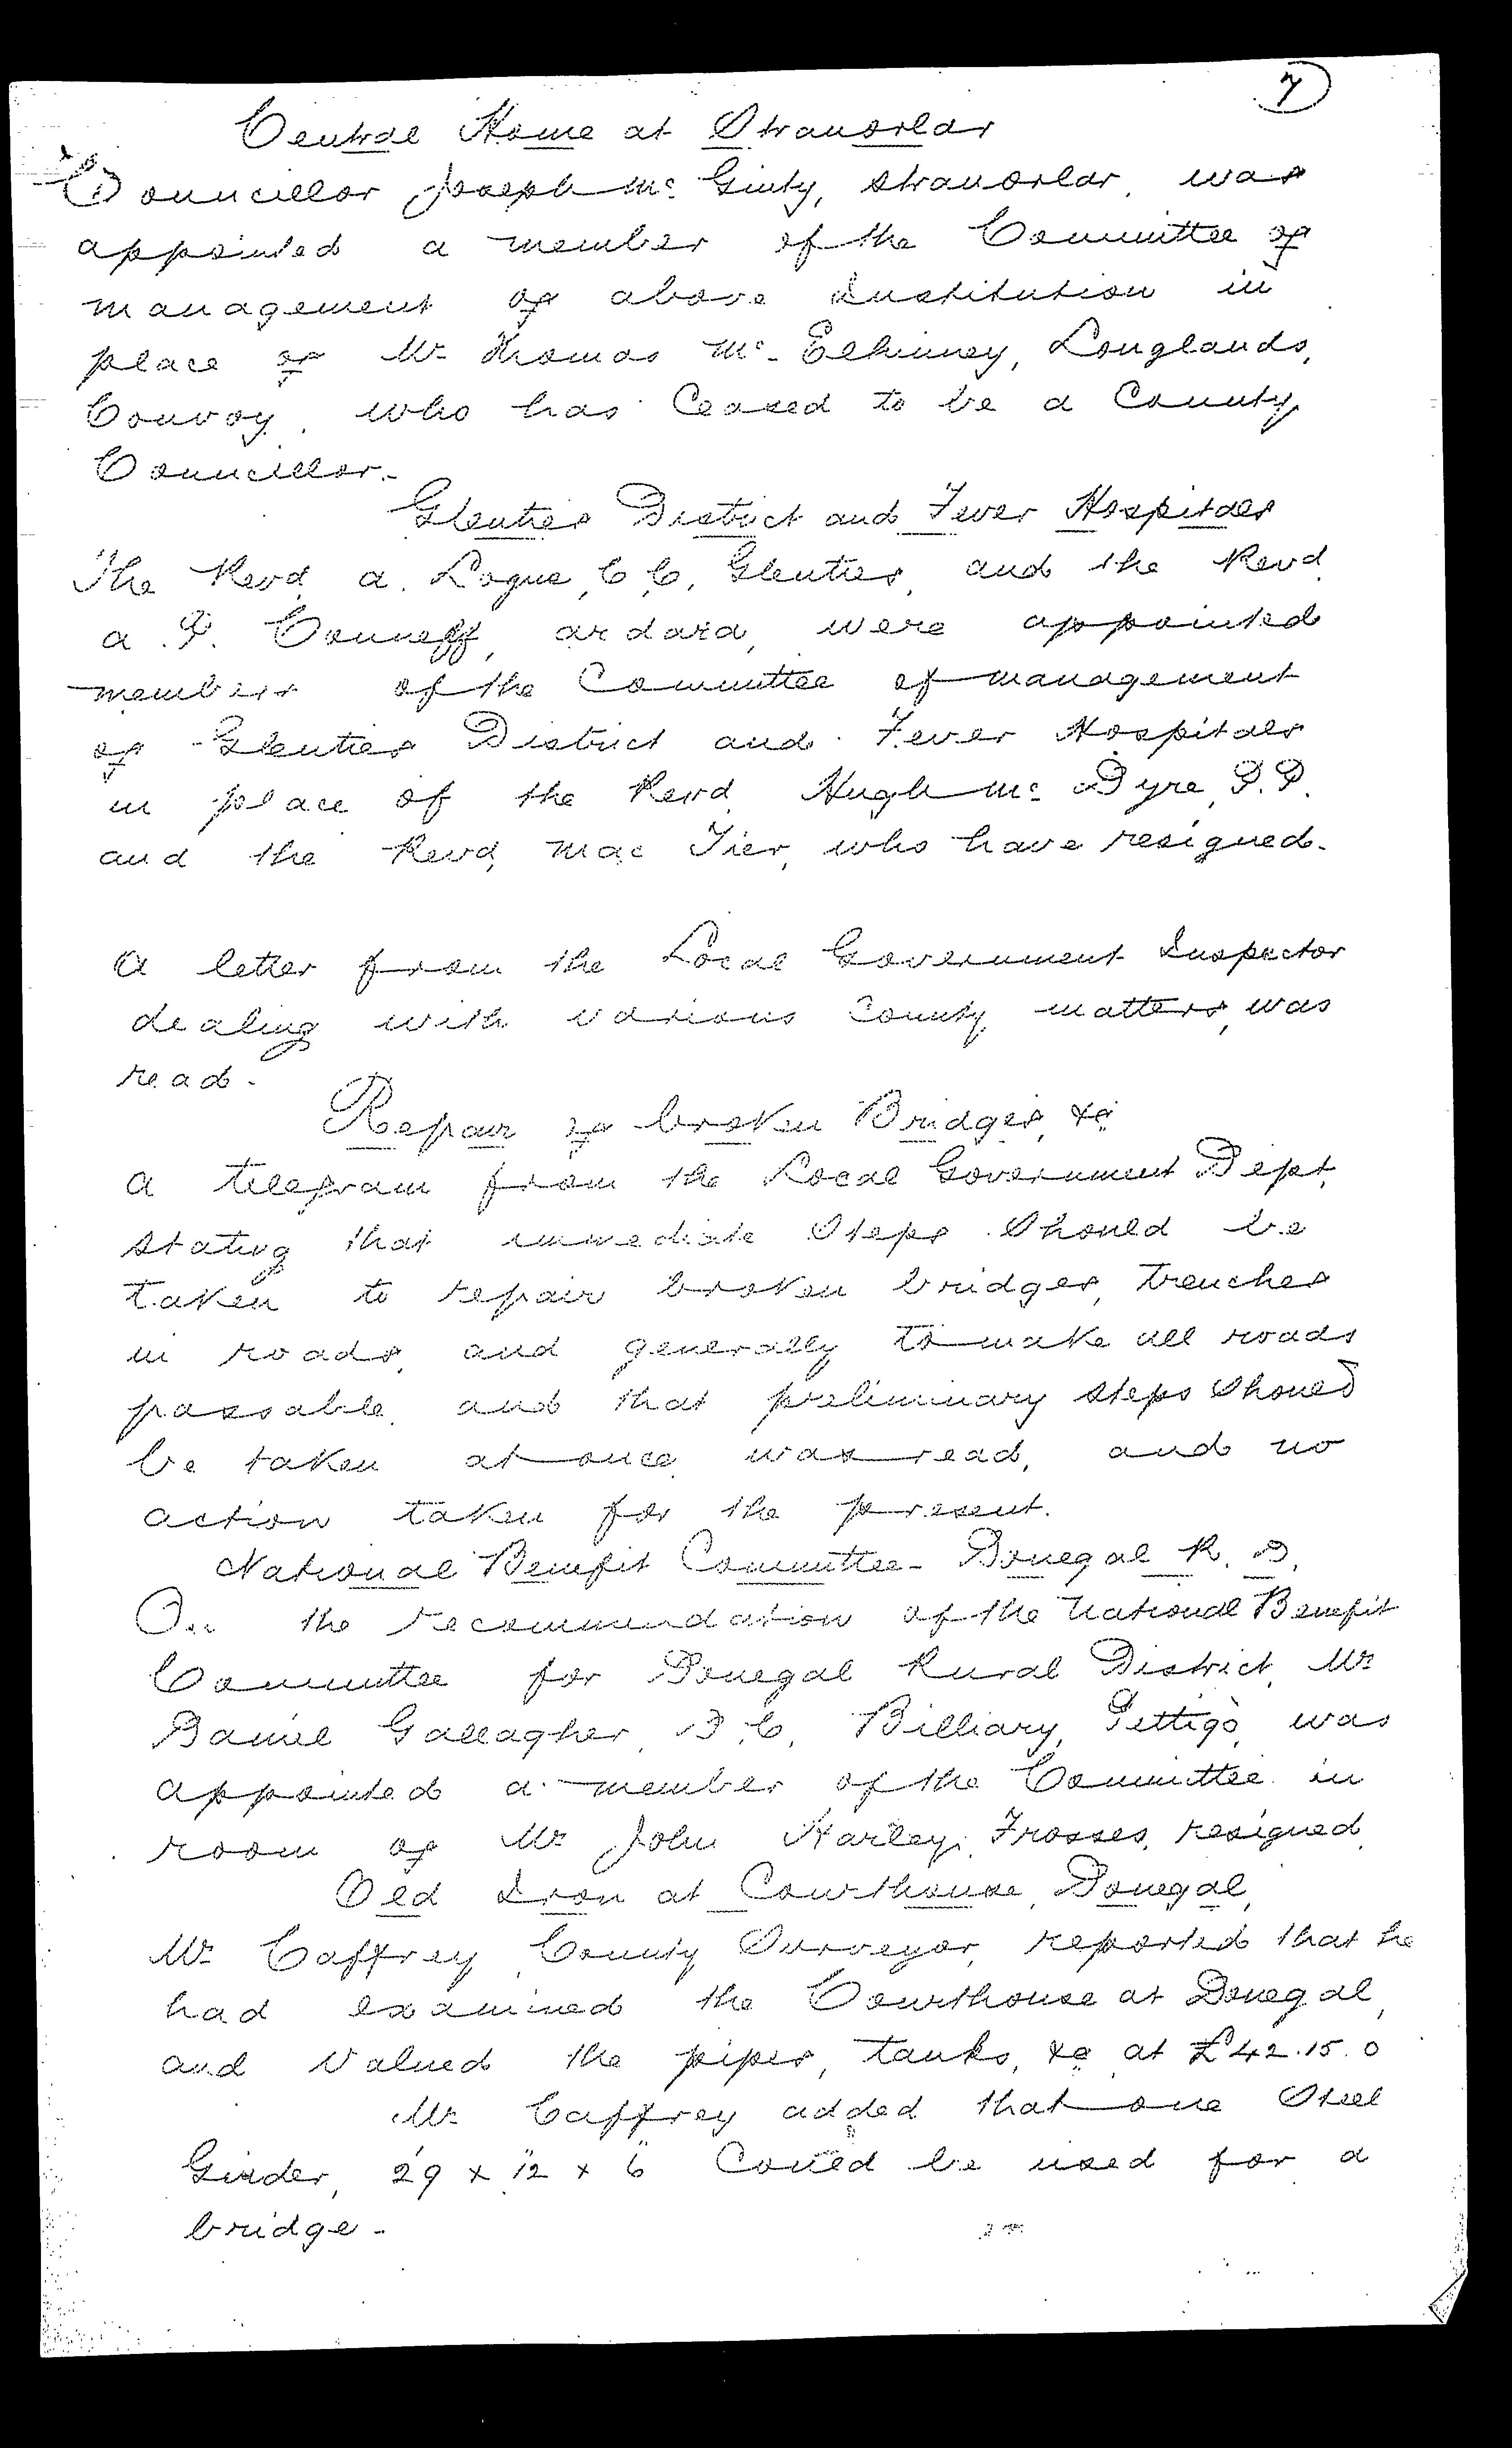 7
Central Home at Stranorlar
Councillor Joseph Mc Ginty, Stranorlar, was
appointed a member of the Committee of
management of above Institution in
place of Mr Thomas Mc Elhinney, Longlands,
Convoy, who has ceased to be a County
Councillor.
Glenties District and Fever Hospitals
The Revd. A. Logue, C.C., Glenties, and the Revd.
A. P. Conneff, Ardara, were appointed
members of the Committee of management
of Glenties District and Fever Hospitals
in place of the Revd. Hugh Mc Dyre, P.P.
and the Revd, Mac Tier, who have resigned.
A letter from the Local Government Inspector
dealing with various County matters, was
read.
Repair of broken Bridges, &c
A telegram from the Local Government Dept.
stating that immediate steps should be
taken to repair broken bridges, trenches
in roads, and generally to make all roads
passable, and that preliminary steps should
be taken at once, was read, and no
action taken for the present.
National Benefit Committee - Donegal R. D.
On the recommendation of the National Benefit
Committee for Donegal Rural District, Mr
Daniel Gallagher, D.C. Billiary, Pettigo, was
appointed a member of the Committee in
room of Mr John Harley, Frosses, resigned.
Old Iron at Courthouse, Donegal,
Mr Caffrey, County Surveyor, reported that he
had examined the Courthouse at Donegal,
and valued the pipes, tanks, &c at £42.15.0
Mr Caffrey added that one Steel
Girder, 29' x 12" x 6" could be used for a
bridge.